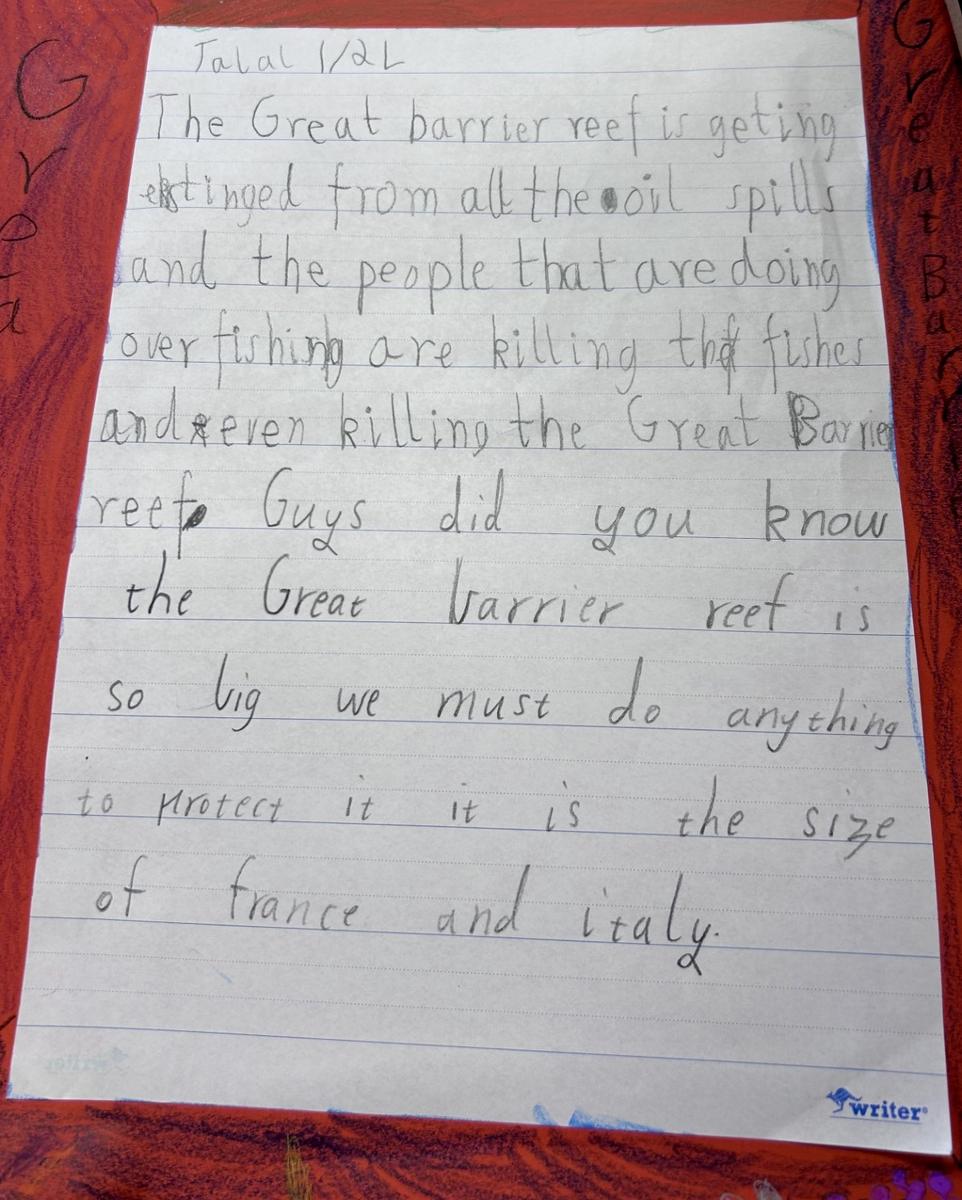 Jalal 1/2L
The Great barrier reef is geting
ekstinged from all the oil spills
and the people that are doing
over fishing are killing the fishes
and even killing the Great Barrier
reef. Guys did you know
the Great barrier reef is
so big we must do anything
to protect it it is the size
of france and italy.
writer
Grea
Great Bar